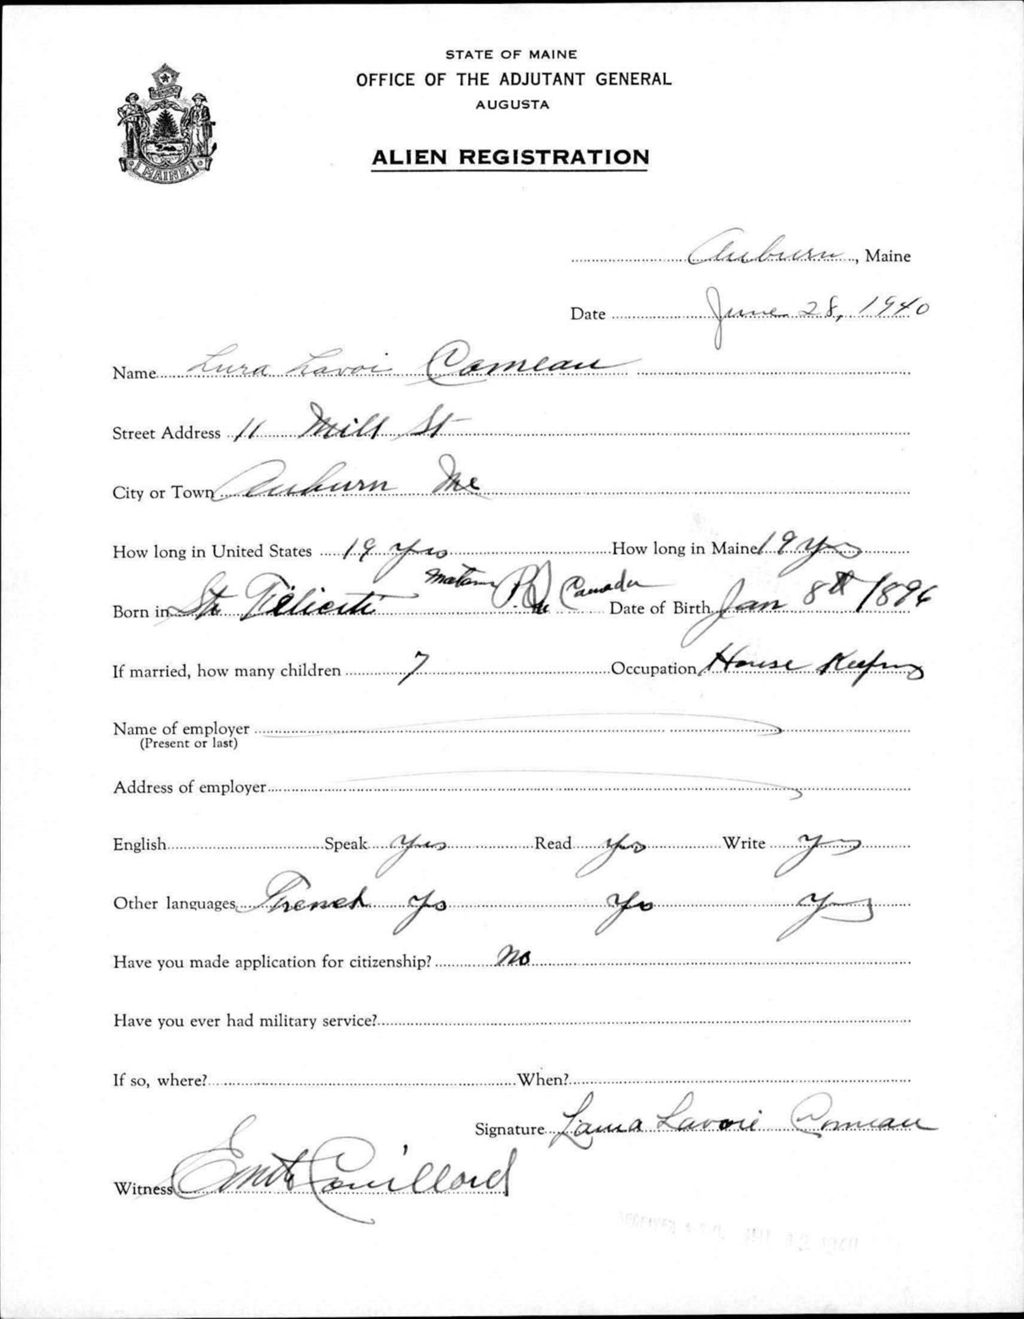 STATE OF MAINE
OFFICE OF THE ADJUTANT GENERAL
AUGUSTA
ALIEN REGISTRATION
MAINE
Auburn, Maine
Date June 28, 1940
Name Lura Lavoi Comeau
Street Address 11 Mill St
City or Town Auburn Me
How long in United States 19 yrs How long in Maine 19 yrs
Born in Ste Félicité Matane P.Q. Canada Date of Birth Jan 8th 1896
If married, how many children 7 Occupation House Keeping
Name of employer
(Present or last)
Address of employer
English Speak Yes Read Yes Write Yes
Other languages French Yes Yes Yes
Have you made application for citizenship? No
Have you ever had military service?
If so, where? When?
Signature Laura Lavoie Comeau
Witness Couillard